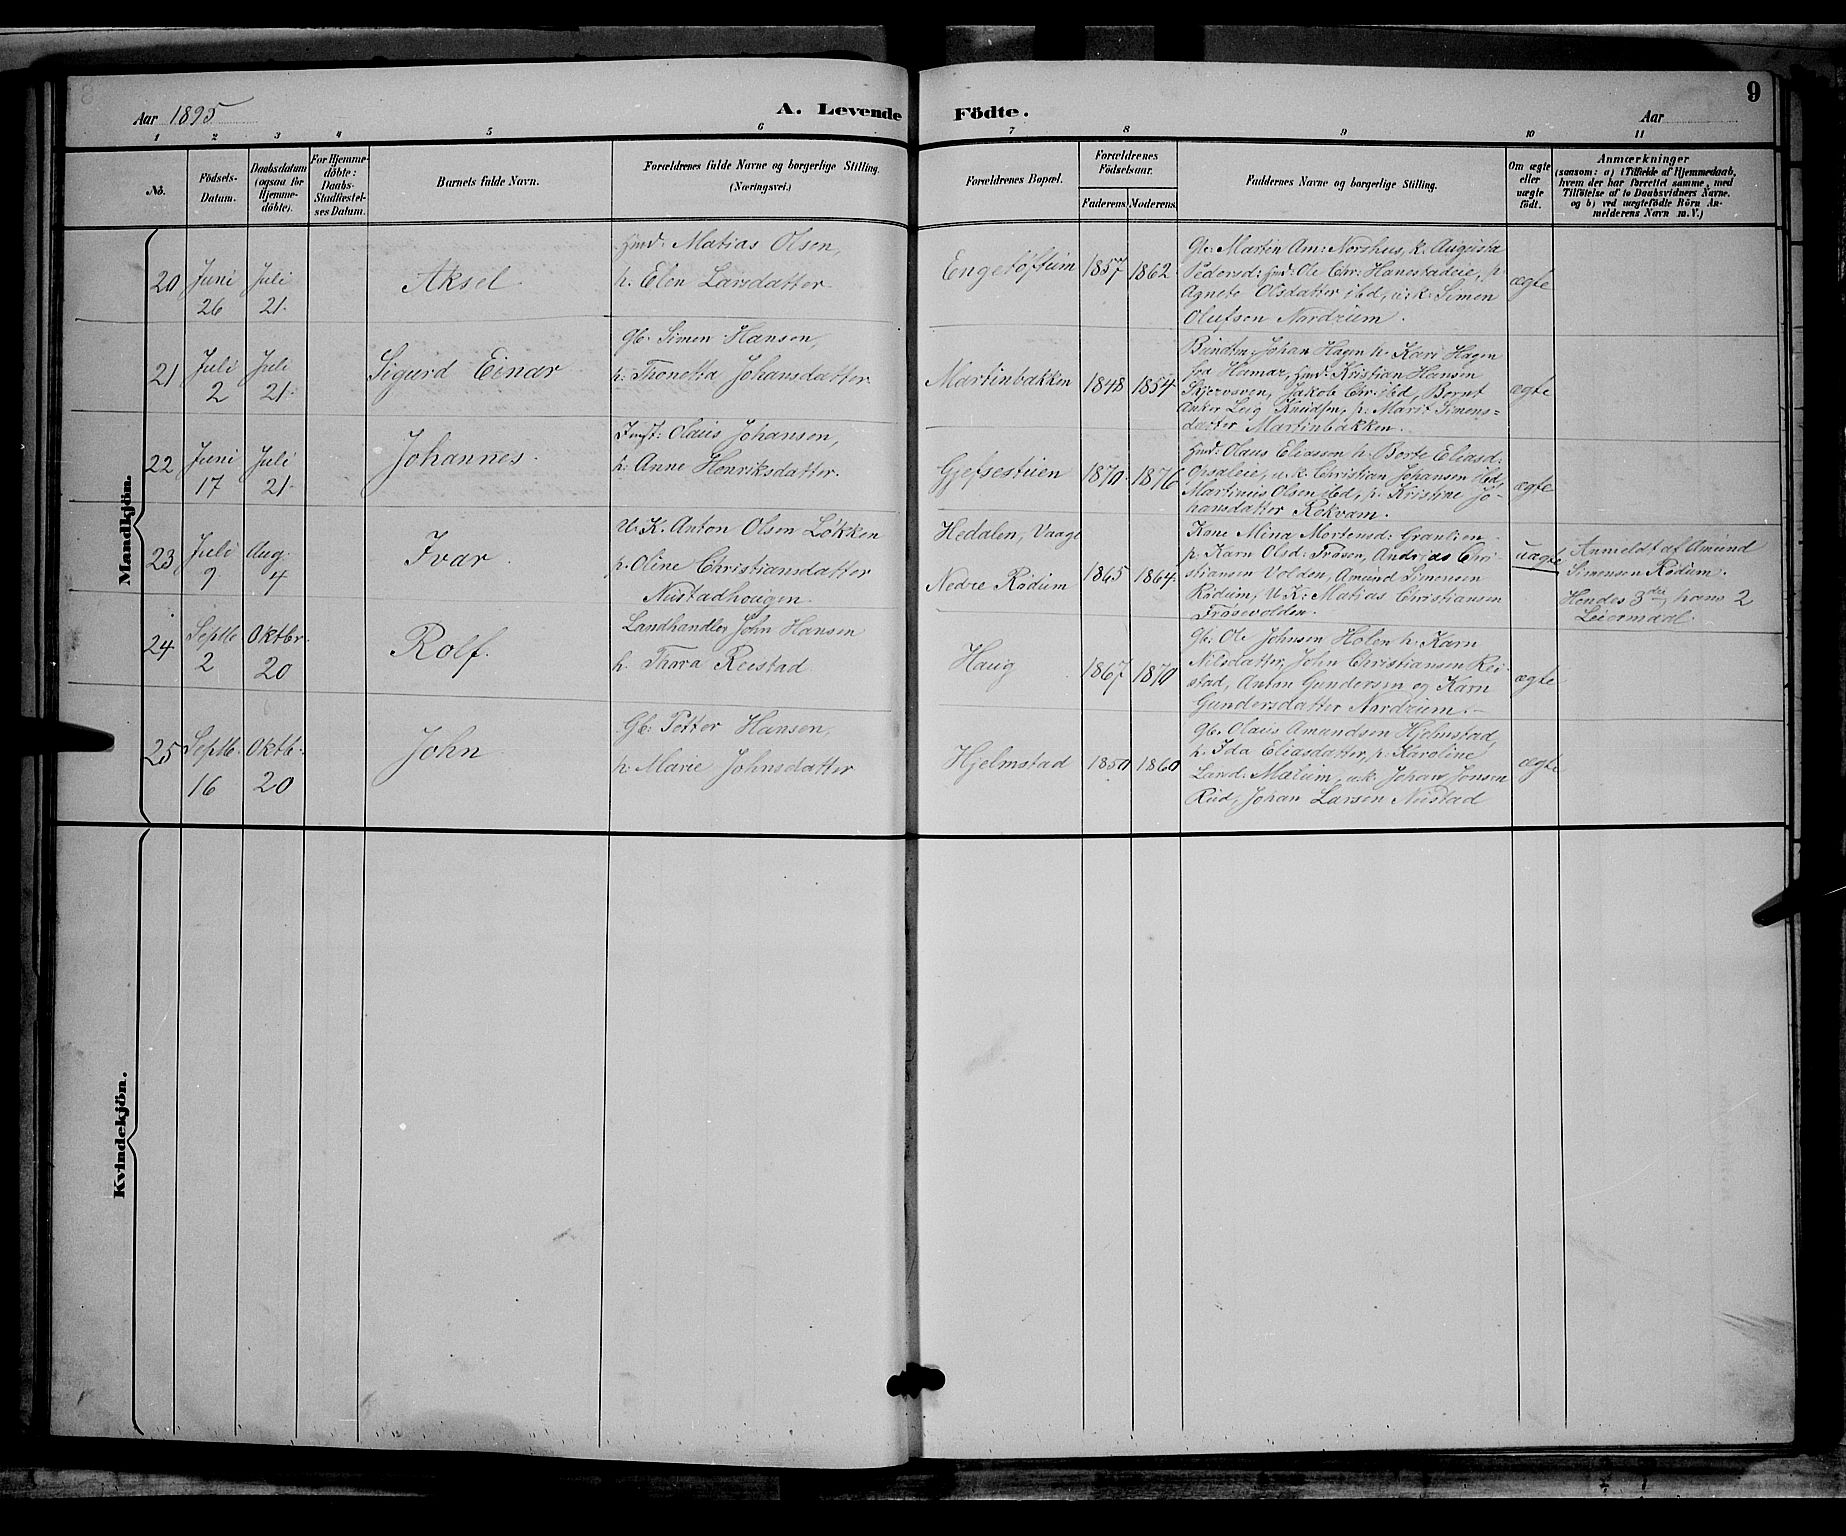 Aar 1895
A. Levende Födte.
Aar
9
1 2 3 4 5 6 7 8 9 10 11
No.
Födsels-
Datum.
Daabsdatum
(ogsaa for
Hjemme-
döbte).
For Hjemme-
döbte:
Daabs-
Stadfæstel-
ses Datum.
Barnets fulde Navn.
Forældrenes fulde Navne og borgerlige Stilling.
(Næringsvei.)
Forældrenes Bopæl.
Forældrenes
Födselsaar.
Faderens Moderens
Faddernes Navne og borgerlige Stilling.
Om ægte
eller
uægte
födt.
Anmærkninger
(saasom: a) i Tilfælde af Hjemmedaab,
hvem der har forrettet samme, med
Tilföielse af to Daabsvidners Navne.
og b) ved uægtefödte Börn An-
melderens Navn m. V.)
Mandkjön.
20
Juni
26
Juli
21.
Aksel
Hmd. Matias Olsen,
h. Elen Larsdatter
Engetöftum
1857
1862
Gb. Martin Am: Norshus, k. Augusta
Pedersd: Hmd: Ole Chr: Hanestadeie, p.
Agnete Olsdatter ibd, u.k. Simen
Olufsen Nardrum.
ægte
21
Juli
2
Juli
21.
Sigurd Einar
Gb. Simen Hansen,
h. Thonetta Johansdatter
Martinbakken
1848
1854
Johan Hagen h. Kari Hagen
fra Hamar, Hmd. Kristian Hansen
Jakob Chr. ibd, Bernt
Anker Leig Knudsen, p. Marit Simens-
datter Martinbakken.
ægte
22
Juni
17
Juli
21
Johannes.
Inst: Olaus Johansen,
h. Anne Henriksdatter.
Gjefsestuen
1870.
1876
Hmd. Olaus Eliassen h. Berte Eliasd.
u.k. Christian Johansen ibd,
Martinus Olsen ibd, p. Kristine Jo-
hansdatter Rekvam.
ægte
23
Juli
9
Aug.
4
Ivar.
U. K. Anton Olsen Lökken
p. Oline Christiansdatter
Nustadhougen.
Hedalen, Vaage
Nedre Rödum
1865
1864.
Kone Mina Mortensd: Granlien
p. Karn Olsd: Frösen, Andreas Chri-
stiansen Volden, Amund Simensen
Rödum, U. K: Matias Christiansen
Frösevolden.
uægte
Anmeldt af Amund
Simensen Rödum.
Hendes 3die, hans 2
Leiermaal.
24
Septb
2
Oktbr.
20
Rolf.
Landhandler John Hansen
h. Thora Reistad
Haug
1867
1870
Gb. Ole Johnsen Holen h. Karn
Nilsdatter, John Christiansen Rei-
stad, Anton Gundersen og Karn
Gundersdatter Nardrum.
ægte
25
Septb.
16
Oktb.
20
John
Gb. Petter Hansen,
h. Marie Johnsdatter
Hjelmstad
1850
1860
Gb. Olaus Amundsen Hjelmstad
h. Ida Eliasdatter, p. Karoline
Land: Malum, u.k. Johan Jonsen
Rud, Johan Larsen Nustad
ægte
Kvindekjön.